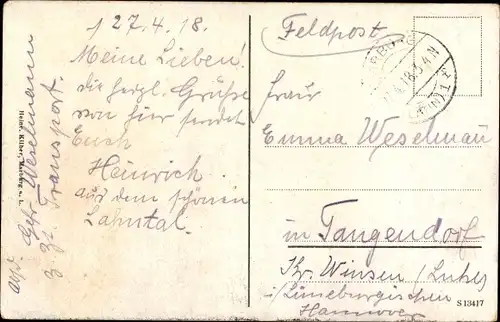 27.4.18.
Meine Lieben!
die herzl. Grüße
von hier sendet
Euch
Heinrich
aus dem schönen
Lahntal.
Abs. Gfr. Weselmann
z. Zt. Transport.
Feldpost
Frau
Emma Weselmann
in Tangendorf
Kr. Winsen (Luhe)
i/Lüneburgischen
Hannover
S 13417